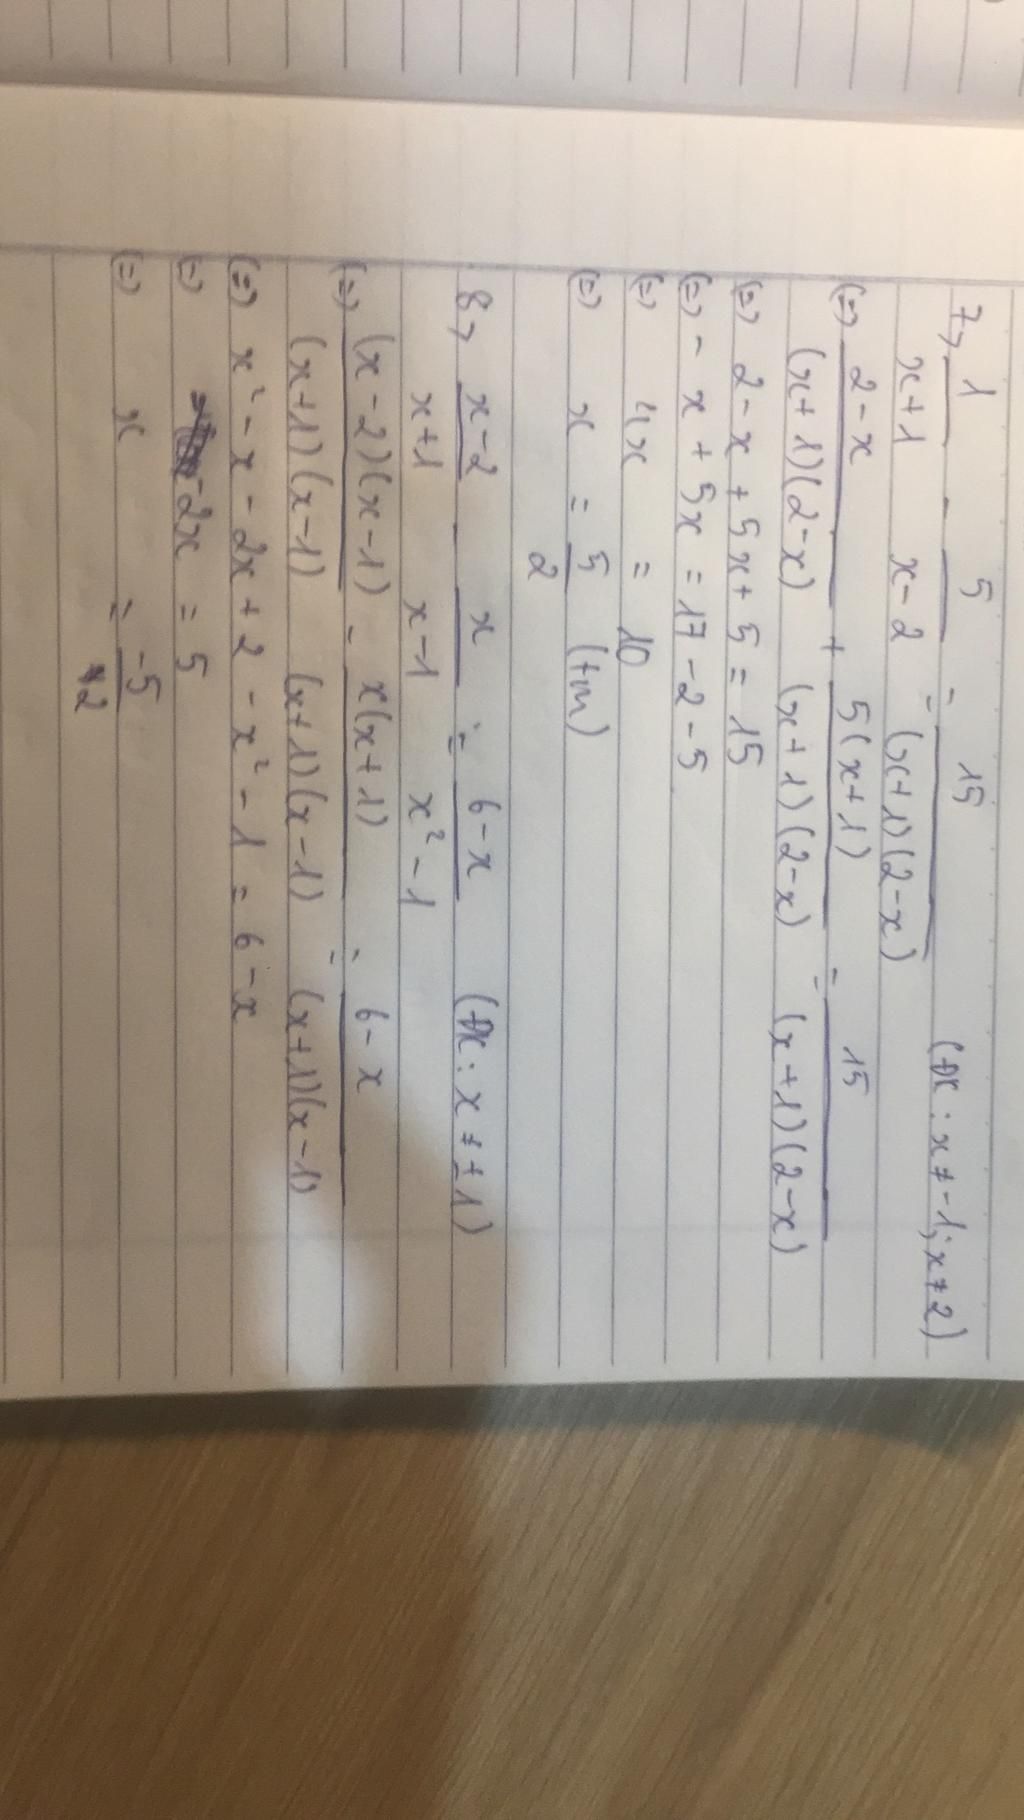 7, 1/(x+1) - 5/(x-2) = 15/((x+1)(2-x)) (ĐK: x ≠ -1; x ≠ 2)
(=) (2-x)/((x+1)(2-x)) + 5(x+1)/((x+1)(2-x)) = 15/((x+1)(2-x))
(=) 2-x+5x+5 = 15
(=) -x+5x = 17-2-5
(=) 4x = 10
(=) x = 5/2 (tm)
8, (x-2)/(x+1) - x/(x-1) = (6-x)/(x²-1) (ĐK: x ≠ ±1)
(=) (x-2)(x-1)/((x+1)(x-1)) - x(x+1)/((x+1)(x-1)) = (6-x)/((x+1)(x-1))
(=) x²-x-2x+2-x²-1 = 6-x
(=) -2x = 5
(=) x = -5/2